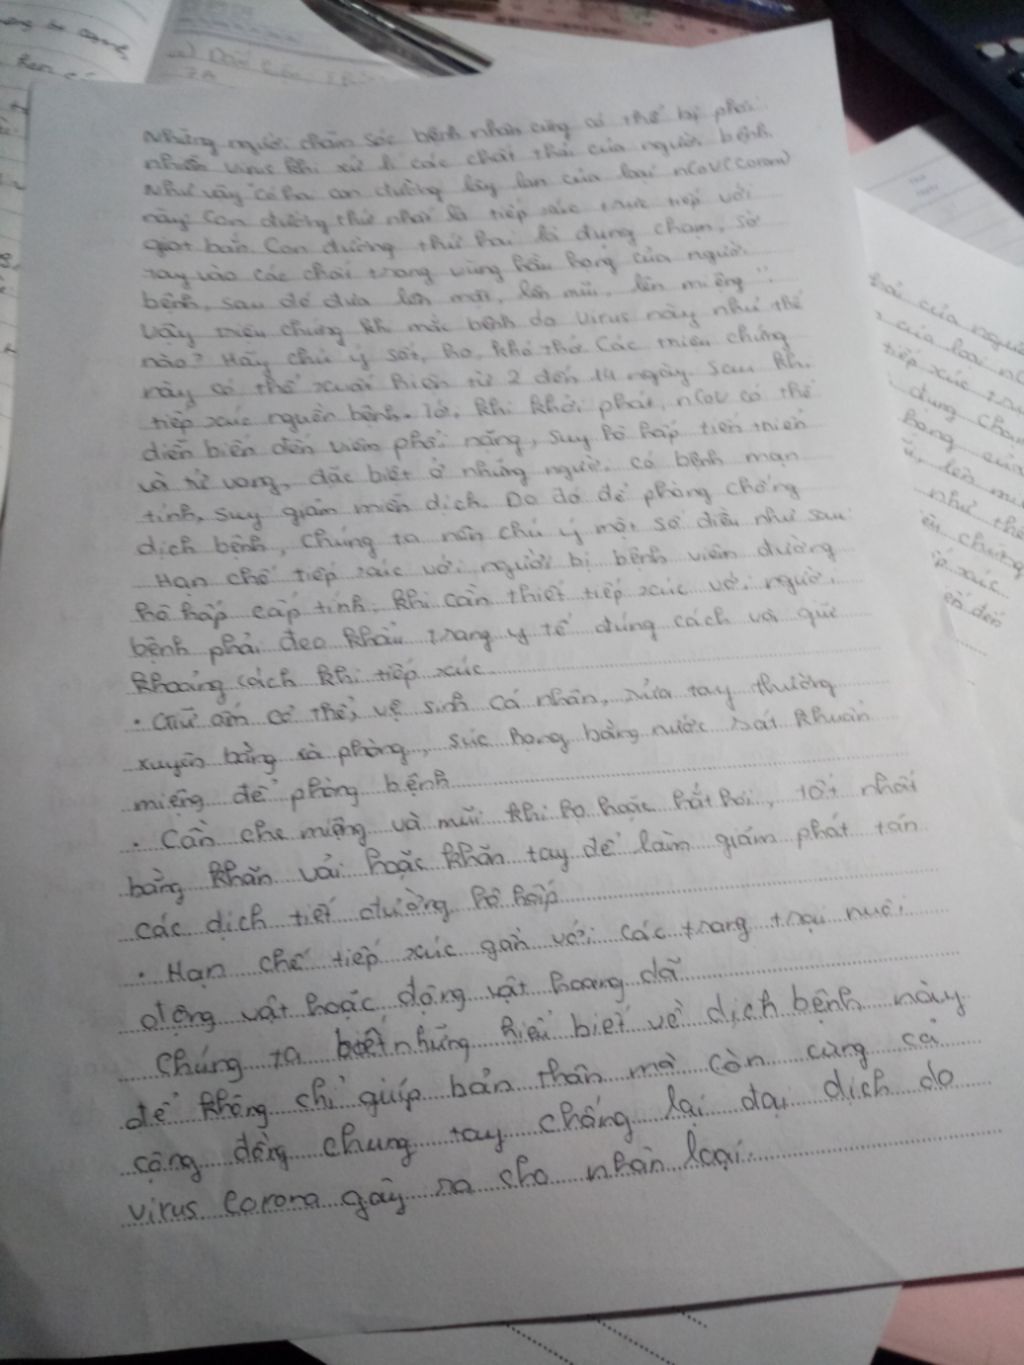 Những người chăm sóc bệnh nhân cũng có thể bị phơi
nhiễm virus khi xử lí các chất thải của người bệnh.
Như vậy "có ba con đường lây lan của loại nCoV (Corona)
này: Con đường thứ nhất là tiếp xúc trực tiếp với
giọt bắn. Con đường thứ hai là đụng chạm, sờ
tay vào các chất trong vùng hầu họng của người
bệnh, sau đó đưa lên mắt, lên mũi, lên miệng".
Vậy triệu chứng khi mắc bệnh do virus này như thế
nào? Hãy chú ý sốt, ho, khó thở. Các triệu chứng
này có thể xuất hiện từ 2 đến 14 ngày sau khi
tiếp xúc nguồn bệnh. Tới khi khởi phát, nCoV có thể
diễn biến đến viêm phổi nặng, suy hô hấp tiến triển
và tử vong, đặc biệt ở những người có bệnh mạn
tính, suy giảm miễn dịch. Do đó để phòng chống
dịch bệnh, chúng ta nên chú ý một số điều như sau:
Hạn chế tiếp xúc với người bị bệnh viêm đường
hô hấp cấp tính. Khi cần thiết tiếp xúc với người
bệnh phải đeo khẩu trang y tế đúng cách và giữ
khoảng cách khi tiếp xúc
• Giữ ấm cơ thể, vệ sinh cá nhân, rửa tay thường
xuyên bằng xà phòng, súc họng bằng nước sát khuẩn
miệng để phòng bệnh
• Cần che miệng và mũi khi ho hoặc hắt hơi, tốt nhất
bằng khăn vải hoặc khăn tay để làm giảm phát tán
các dịch tiết đường hô hấp
• Hạn chế tiếp xúc gần với các trang trại nuôi
động vật hoặc động vật hoang dã
Chúng ta biết những hiểu biết về dịch bệnh này
để không chỉ giúp bản thân mà còn cùng cả
cộng đồng chung tay chống lại đại dịch do
virus Corona gây ra cho nhân loại.